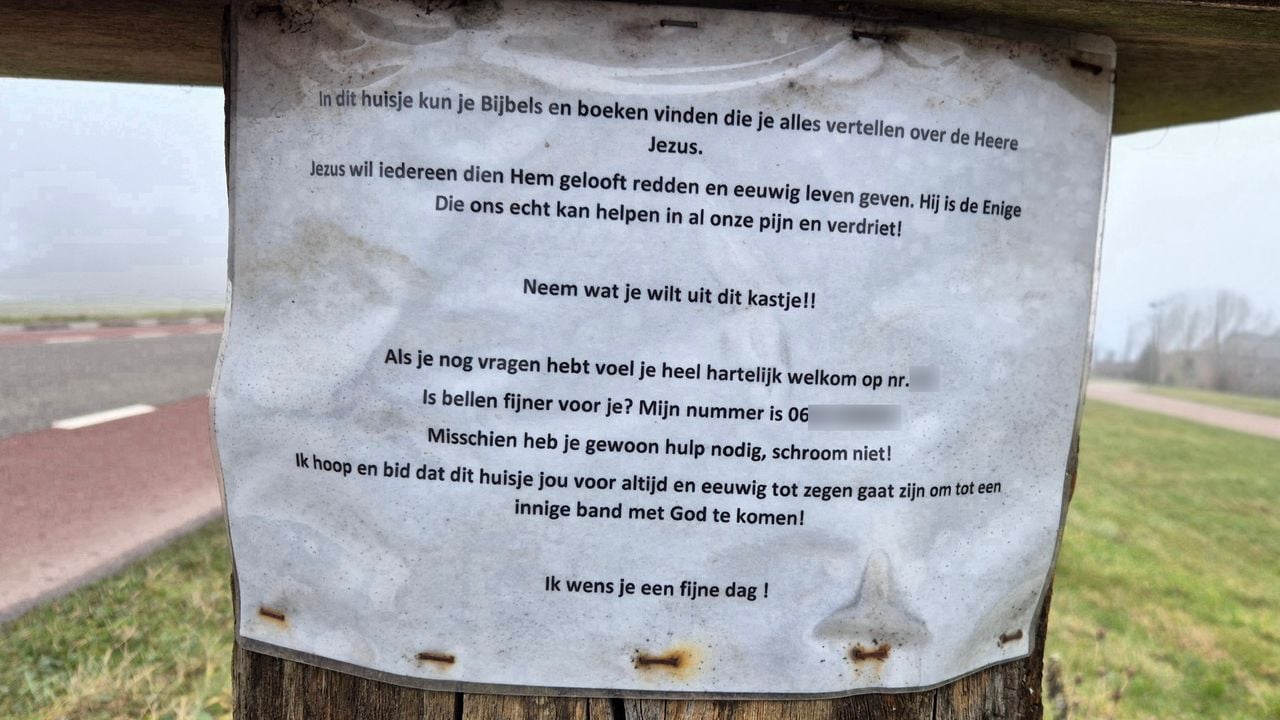 In dit huisje kun je Bijbels en boeken vinden die je alles vertellen over de Heere
Jezus.
Jezus wil iedereen dien Hem gelooft redden en eeuwig leven geven. Hij is de Enige
Die ons echt kan helpen in al onze pijn en verdriet!
Neem wat je wilt uit dit kastje!!
Als je nog vragen hebt voel je heel hartelijk welkom op nr.
Is bellen fijner voor je? Mijn nummer is 06
Misschien heb je gewoon hulp nodig, schroom niet!
Ik hoop en bid dat dit huisje jou voor altijd en eeuwig tot zegen gaat zijn om tot een
innige band met God te komen!
Ik wens je een fijne dag !